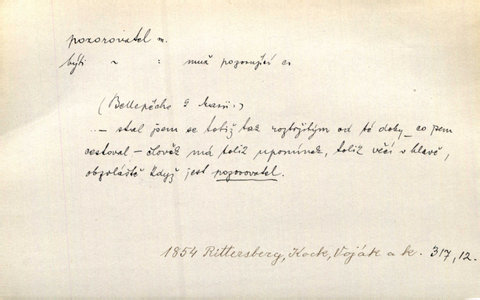 pozorovatel m.
býti ~ : muž pozorující co
(Bellepêche k Marii.)
– stal jsem se totiž tak roztržitým od té doby – co jsem
cestoval – člověk má tolik upomínek, tolik věcí v hlavě,
obzvláště když jest pozorovatel.
1854 Rittersberg, Kock, Voják a k. 317,12.